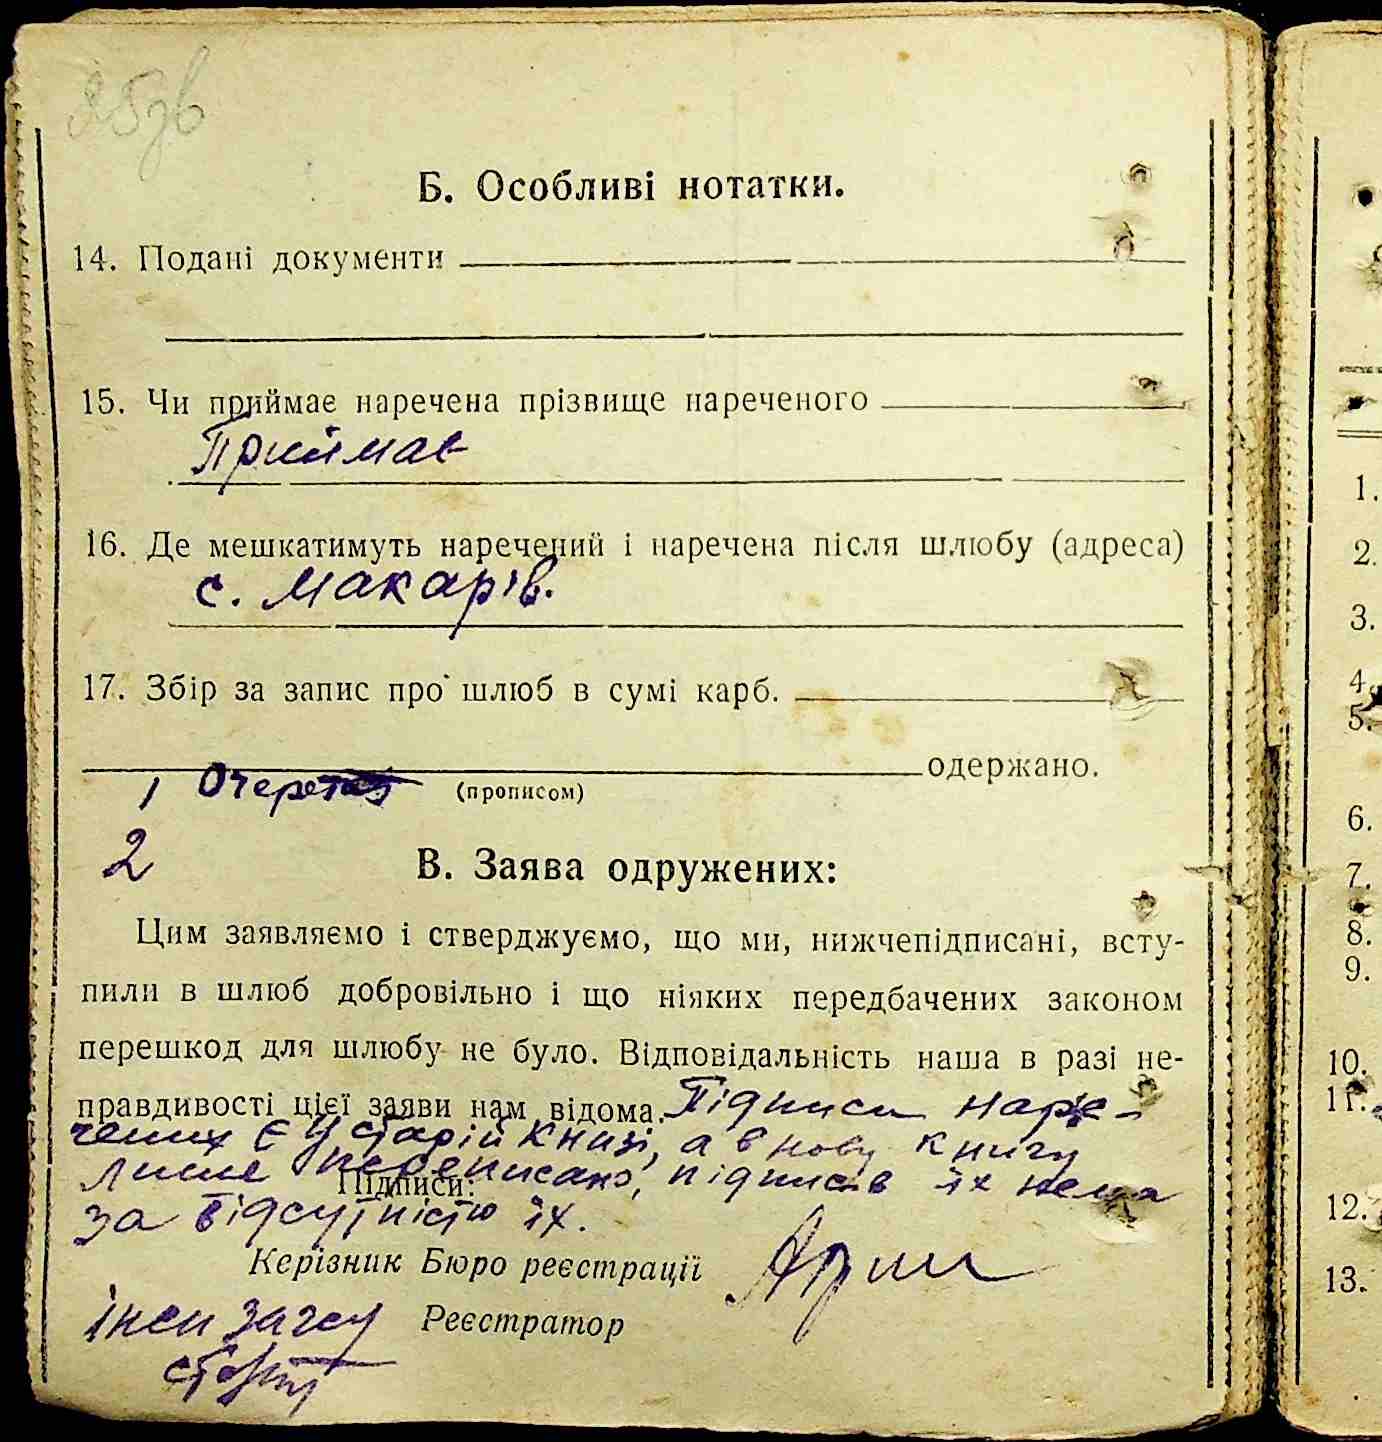 Б. Особливі нотатки.
14. Подані документи
15. Чи приймає наречена прізвище нареченого
Приймає
16. Де мешкатимуть наречений і наречена після шлюбу (адреса)
с. Макарів.
17. Збір за запис про шлюб в сумі карб.
одержано.
1
(прописом)
2
В. Заява одружених:
Цим заявляємо і стверджуємо, що ми, нижчепідписані, всту-
пили в шлюб добровільно і що ніяких передбачених законом
перешкод для шлюбу не було. Відповідальність наша в разі не-
правдивості цієї заяви нам відома. Підписи наре-
чених є у старій книзі, а в нову книгу
лише переписано, підписів їх нема
Підписи:
за відсутністю їх.
Керізник Бюро реєстрації
інсп загсу Реєстратор
1.
2.
3.
4.
5.
6.
7.
8.
9.
10.
11.
12.
13.